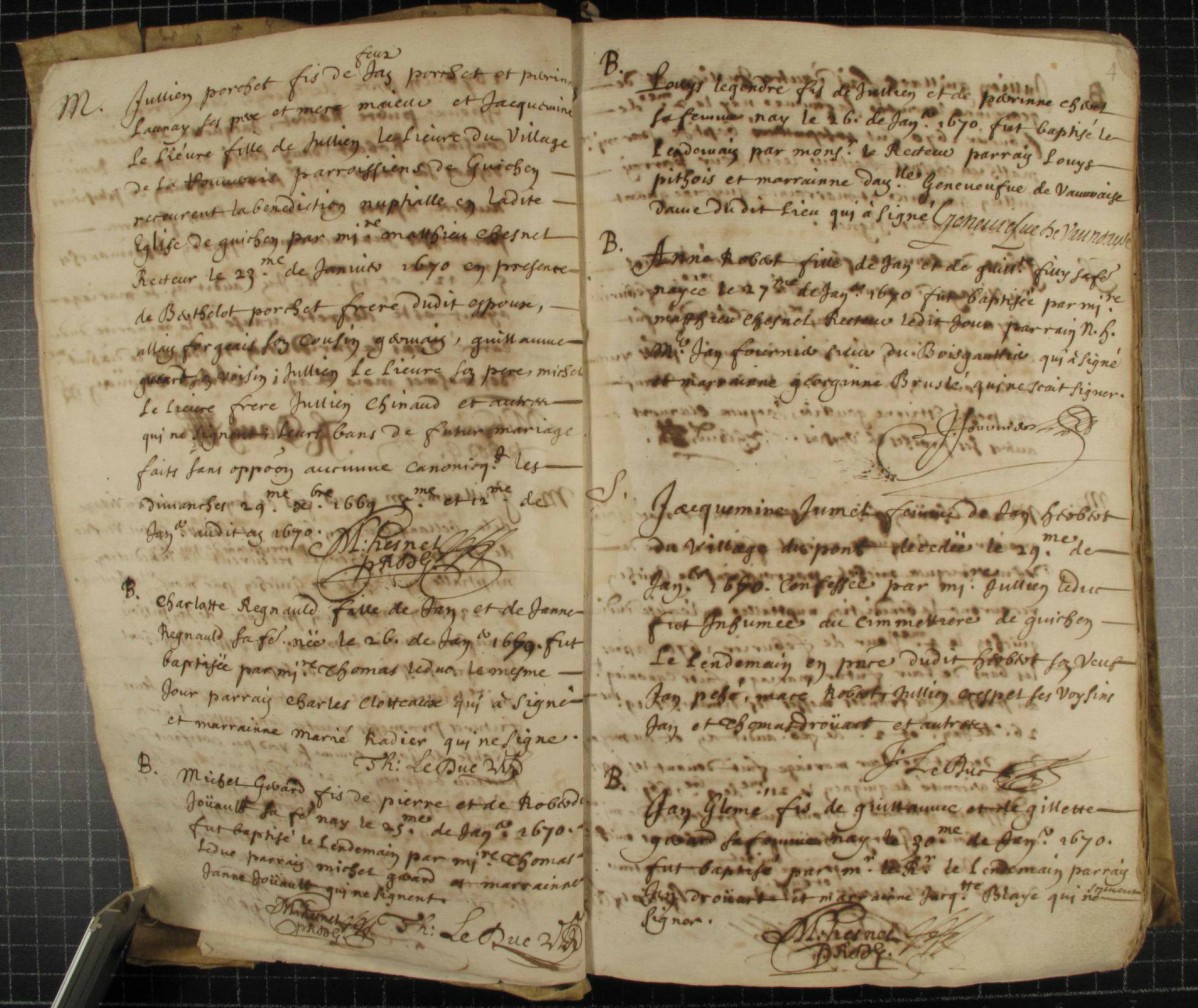 feuz
M. Jullien porchet fis de Jan porchet et perrine
Launay ses pere et mere et Jacquemine
Le Liévre fille de Jullien le Lieure du Village
de la parroissiens de Guichen
receurent la benediction nuptialle en ladite
Eglise de guichen par mi.re matthieu chesnel
Recteur le 23.me de Janvier 1670 en presence
de Berthelot porchet frere dudit espoux,
allan forgeais son Cousin germain, guillaume
son voisin; Jullien Le Lieure son pere, michel
Le Lieure frere Jullien Chinaud et autres
qui ne signent. Leurs bans de futur mariage
faits sans oppoon aucunne canonicq. les
dimanches 29.me xbre 1669 5.me et 12.me de
Jan.er audit an 1670.
M: Chesnel
B. Charlotte Regnauld fille de Jan et de Janne
Regnauld sa fe. née le 26. de Jan.er 1669. fut
baptisée par mi.re Thomas leduc le mesme
Jour parrain Charles Clotteaux qui à Signé
et marrainne Marie Radier qui ne Signe.
Th: Le Duc
B. Michel Gerard fis de pierre et de
Joüault sa fe nay le 25.me de Jan.er 1670.
fut baptisé le Lendemain par mi.re Thomas
Leduc parrain michel gerard et marrainne
Janne Joüault qui ne signent.
M: Chesnel Th: Le Duc
4
B. Louys legendre fis de Jullien et de perrinne
sa femme nay le 26. de Jan.er 1670 fut baptisé le
Lendemain par mons.r le Recteur parrain Louys
pithois et marrainne dam.lle Geneuefue de Vaunoise
Dame dudit Lieu qui à signé Geneuefue de Vaunoise
B. Anne Robert fille de Jan et de guill.e filly sa fe
nayée le 27.me de Jan.er 1670 fut baptisée par mi.re
matthieu Chesnel Recteur ledit Jour parrain N. h.
M.e Jan fournier sieur du Boisgaultier qui à signé
et marrainne georgenne Bruslé qui ne scait signer.
J fournier
S. Jacquemine Jumel femme de Jan herbert
du Village du pont decedée le 29.me de
Jan.er 1670. Confessée par mi.re Jullien leduc
fut Inhumée au Cimmetiere de guichen
Le Lendemain en pnce dudit herbert son Veuf
Jan mace Robert, Jullien crespel ses Voysins
Jan et Thomas droüart et autres.
J. Le Duc
B. Jan Glemé fis de guillaume et de gillette
gerard sa femme nay le 30.me de Jan.er 1670.
fut baptisé par m.r le R.r le Lendemain parrain
Jan droüart et marrainne Jacq.tte Blaye qui ne
signer.
M: Chesnel